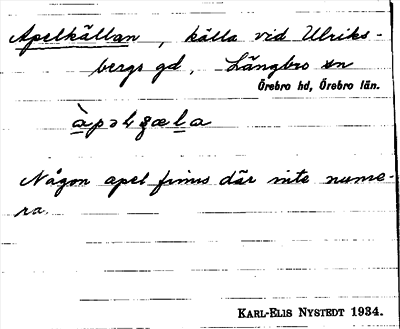 Apelkällan, källa vid Ulriks-
bergs gd, Längbro sn
Örebro hd, Örebro län.
Någon apel finns där inte nume-
ra.
Karl-Elis Nystedt 1934.